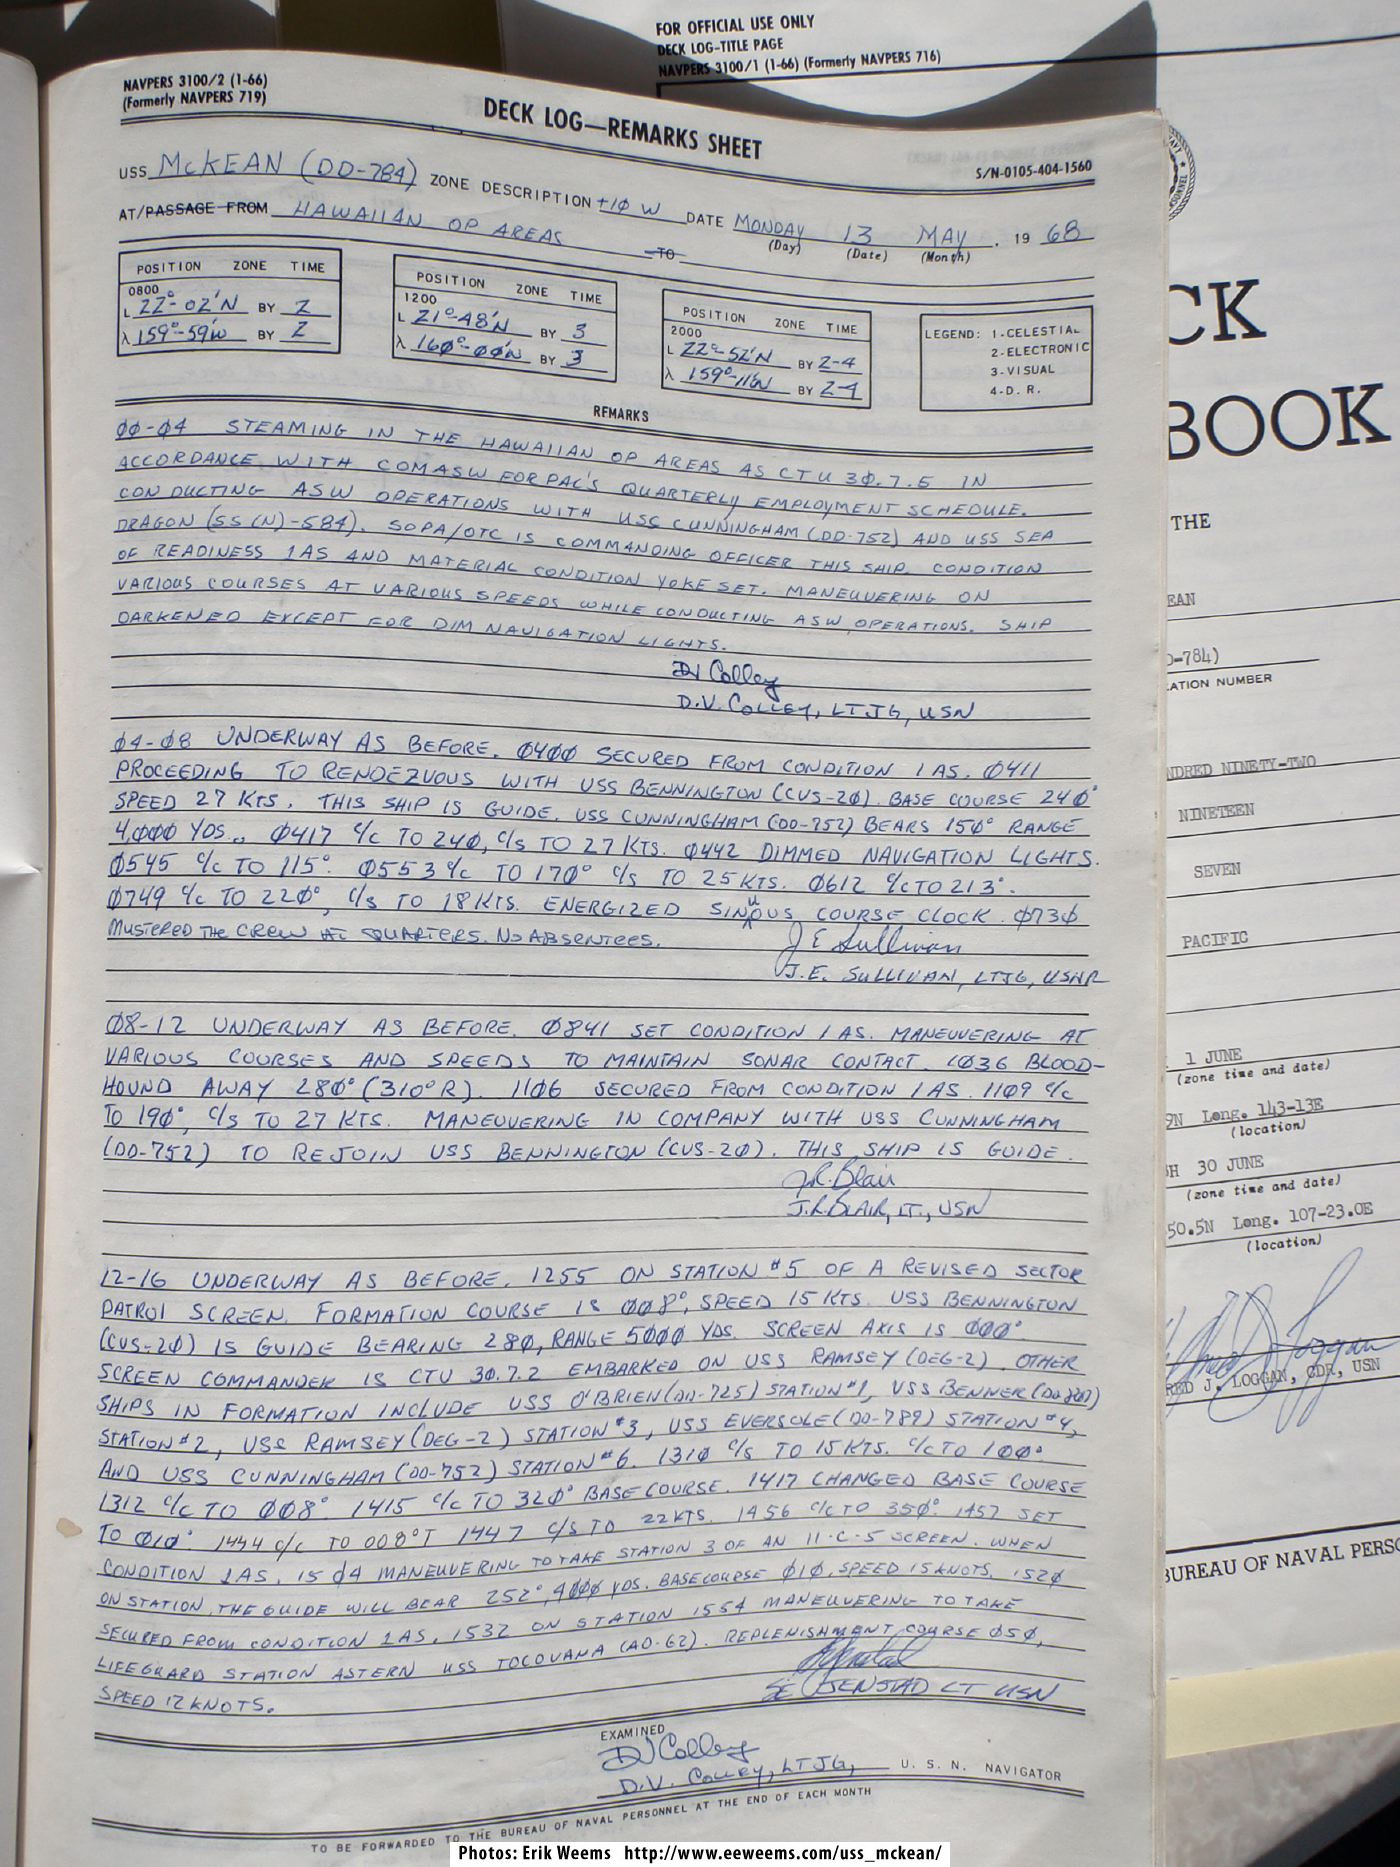 FOR OFFICIAL USE ONLY
DECK LOG-TITLE PAGE
NAVPERS 3100/1 (1-66) (Formerly NAVPERS 716)
NAVPERS 3100/2 (1-66)
(Formerly NAVPERS 719)
DECK LOG—REMARKS SHEET
S/N-0105-404-1560
USS McKEAN (DD-784) ZONE DESCRIPTION +1Ø W DATE MONDAY 13 MAY, 19 68
(Day) (Date) (Month)
AT/PASSAGE FROM HAWAIIAN OP AREAS TO
POSITION ZONE TIME
0800
L 22°-02'N BY 2
λ 159°-59'W BY 2
POSITION ZONE TIME
1200
L 21°-48'N BY 3
λ 160°-ØØ'N BY 3
POSITION ZONE TIME
2000
L 22°-52'N BY 2-4
λ 159°-11'W BY 2-4
LEGEND: 1-CELESTIAL
2-ELECTRONIC
3-VISUAL
4-D. R.
REMARKS
ØØ-Ø4 STEAMING IN THE HAWAIIAN OP AREAS AS CTU 3Ø.7.5 IN
ACCORDANCE WITH COMASWFORPAC'S QUARTERLY EMPLOYMENT SCHEDULE.
CONDUCTING ASW OPERATIONS WITH USS CUNNINGHAM (DD-752) AND USS SEA
DRAGON (SS(N)-584). SOPA/OTC IS COMMANDING OFFICER THIS SHIP. CONDITION
OF READINESS 1AS AND MATERIAL CONDITION YOKE SET. MANEUVERING ON
VARIOUS COURSES AT VARIOUS SPEEDS WHILE CONDUCTING ASW OPERATIONS. SHIP
DARKENED EXCEPT FOR DIM NAVIGATION LIGHTS.
DV Colley
D.V. COLLEY, LTJG, USN
Ø4-Ø8 UNDERWAY AS BEFORE. Ø4ØØ SECURED FROM CONDITION 1AS. Ø411
PROCEEDING TO RENDEZVOUS WITH USS BENNINGTON (CVS-2Ø). BASE COURSE 24Ø°
SPEED 27 KTS. THIS SHIP IS GUIDE. USS CUNNINGHAM (DD-752) BEARS 15Ø° RANGE
4,ØØØ YDS.. Ø417 C/C TO 24Ø, C/S TO 27 KTS. Ø442 DIMMED NAVIGATION LIGHTS.
Ø545 C/C TO 115°. Ø553 C/C TO 17Ø° C/S TO 25 KTS. Ø612 C/C TO 213°.
Ø749 C/C TO 22Ø°, C/S TO 18 KTS. ENERGIZED SINUOUS COURSE CLOCK. Ø73Ø
MUSTERED THE CREW AT QUARTERS. NO ABSENTEES.
J E Sullivan
J.E. SULLIVAN, LTJG, USNR
Ø8-12 UNDERWAY AS BEFORE. Ø841 SET CONDITION 1AS. MANEUVERING AT
VARIOUS COURSES AND SPEEDS TO MAINTAIN SONAR CONTACT. 1Ø36 BLOOD-
HOUND AWAY 28Ø° (31Ø°R). 11Ø6 SECURED FROM CONDITION 1AS. 11Ø9 C/C
TO 19Ø°, C/S TO 27 KTS. MANEUVERING IN COMPANY WITH USS CUNNINGHAM
(DD-752) TO REJOIN USS BENNINGTON (CVS-2Ø). THIS SHIP IS GUIDE.
J.R. Blair
J.R. BLAIR, LT., USN
12-16 UNDERWAY AS BEFORE. 1255 ON STATION #5 OF A REVISED SECTOR
PATROL SCREEN. FORMATION COURSE IS ØØ8°, SPEED 15 KTS. USS BENNINGTON
(CVS-2Ø) IS GUIDE BEARING 28Ø, RANGE 5ØØØ YDS. SCREEN AXIS IS ØØØ°.
SCREEN COMMANDER IS CTU 3Ø.7.2 EMBARKED ON USS RAMSEY (DEG-2). OTHER
SHIPS IN FORMATION INCLUDE USS O'BRIEN (DD-725) STATION #1, USS BENNER (DD 807)
STATION #2, USS RAMSEY (DEG-2) STATION #3, USS EVERSOLE (DD-789) STATION #4,
AND USS CUNNINGHAM (DD-752) STATION #6. 131Ø C/S TO 15 KTS. C/C TO 1ØØ°.
1312 C/C TO ØØ8°. 1415 C/C TO 32Ø° BASE COURSE. 1417 CHANGED BASE COURSE
TO Ø1Ø°. 1444 C/C TO 008°T 1447 C/S TO 22 KTS. 1456 C/C TO 35Ø°. 1457 SET
CONDITION 1AS. 15Ø4 MANEUVERING TO TAKE STATION 3 OF AN 11-C-5 SCREEN. WHEN
ON STATION, THE GUIDE WILL BEAR 252°, 4ØØØ YDS. BASE COURSE Ø1Ø, SPEED 15 KNOTS. 152Ø
SECURED FROM CONDITION 1AS. 1532 ON STATION 1554 MANEUVERING TO TAKE
LIFEGUARD STATION ASTERN USS TOLOVANA (AO-62). REPLENISHMENT COURSE Ø5Ø,
SPEED 12 KNOTS.
SE JENSTAD LT USN
EXAMINED
DV Colley
D.V. COLLEY, LTJG, U. S. N. NAVIGATOR
TO BE FORWARDED TO THE BUREAU OF NAVAL PERSONNEL AT THE END OF EACH MONTH
CK
BOOK
THE
EAN
D-784)
ATION NUMBER
NDRED NINETY-TWO
NINETEEN
SEVEN
PACIFIC
1 JUNE
(zone time and date)
9N Long. 143-13E
(location)
H 30 JUNE
(zone time and date)
50.5N Long. 107-23.0E
(location)
RED J. LOGGAN, CDR, USN
BUREAU OF NAVAL PERSO
Photos: Erik Weems http://www.eeweems.com/uss_mckean/